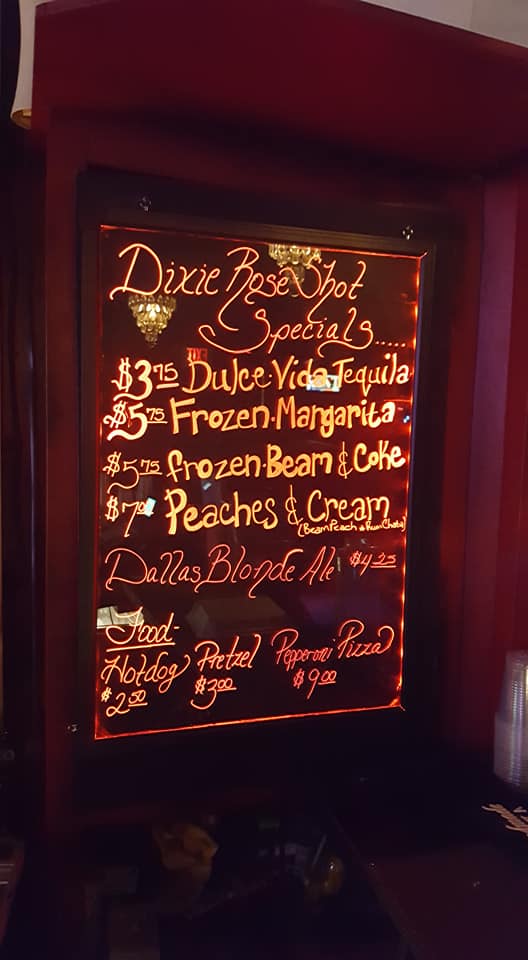 Dixie Rose Shot
Specials.....
$3.75 Dulce Vida Tequila
$5.75 Frozen Margarita
$5.75 frozen Beam & Coke
$7.00 Peaches & Cream
(Beam Peach & Rum Chata)
Dallas Blonde Ale $4.25
Food-
Hotdog Pretzel Pepperoni Pizza
$2.50 $3.00 $9.00